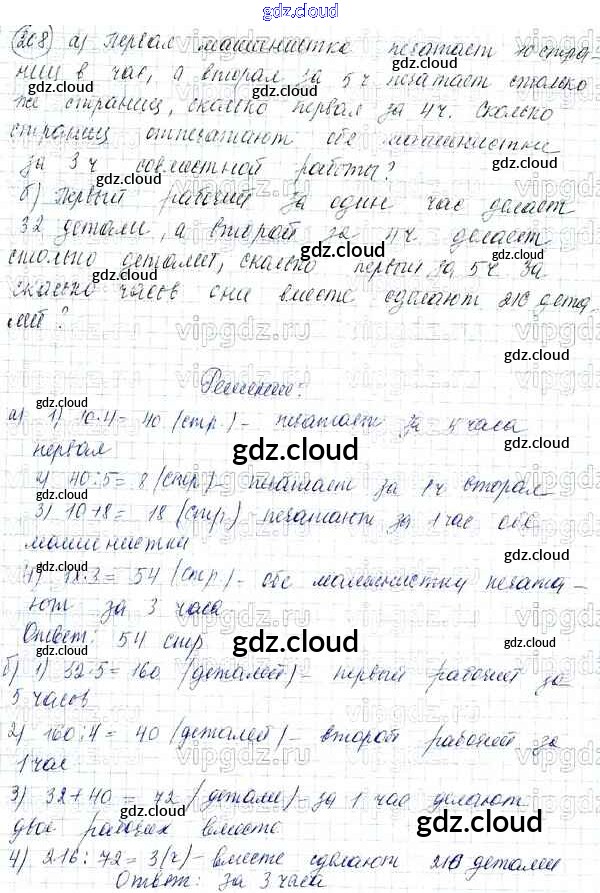 gdz.cloud
208) а) Первая машинистка печатает 10 стра-
ниц в час, а вторая за 5 ч печатает столько
же страниц, сколько первая за 4ч. Сколько
страниц отпечатают обе машинистки
за 3 ч совместной работы?
б) Первый рабочий за один час делает
32 детали, а второй за 4ч делает
столько деталей, сколько первый за 5ч. За
сколько часов они вместе сделают 216 дета-
лей?
Решение:
а) 1) 10·4= 40 (стр.) - печатает за 4 часа
первая
2) 40:5= 8 (стр) - печатает за 1ч вторая
3) 10+8= 18 (стр) - печатают за 1 час обе
машинистки
4) 18·3= 54 (стр) - обе машинистки печата-
ют за 3 часа
Ответ: 54 стр
б) 1) 32·5= 160 (деталей) - первый рабочий за
5 часов
2) 160:4= 40 (деталей) - второй рабочий за
1 час
3) 32+40 = 72 (детали) - за 1 час делают
двое рабочих вместе
4) 216:72=3(ч) - вместе сделают 216 детали
Ответ: за 3 часа